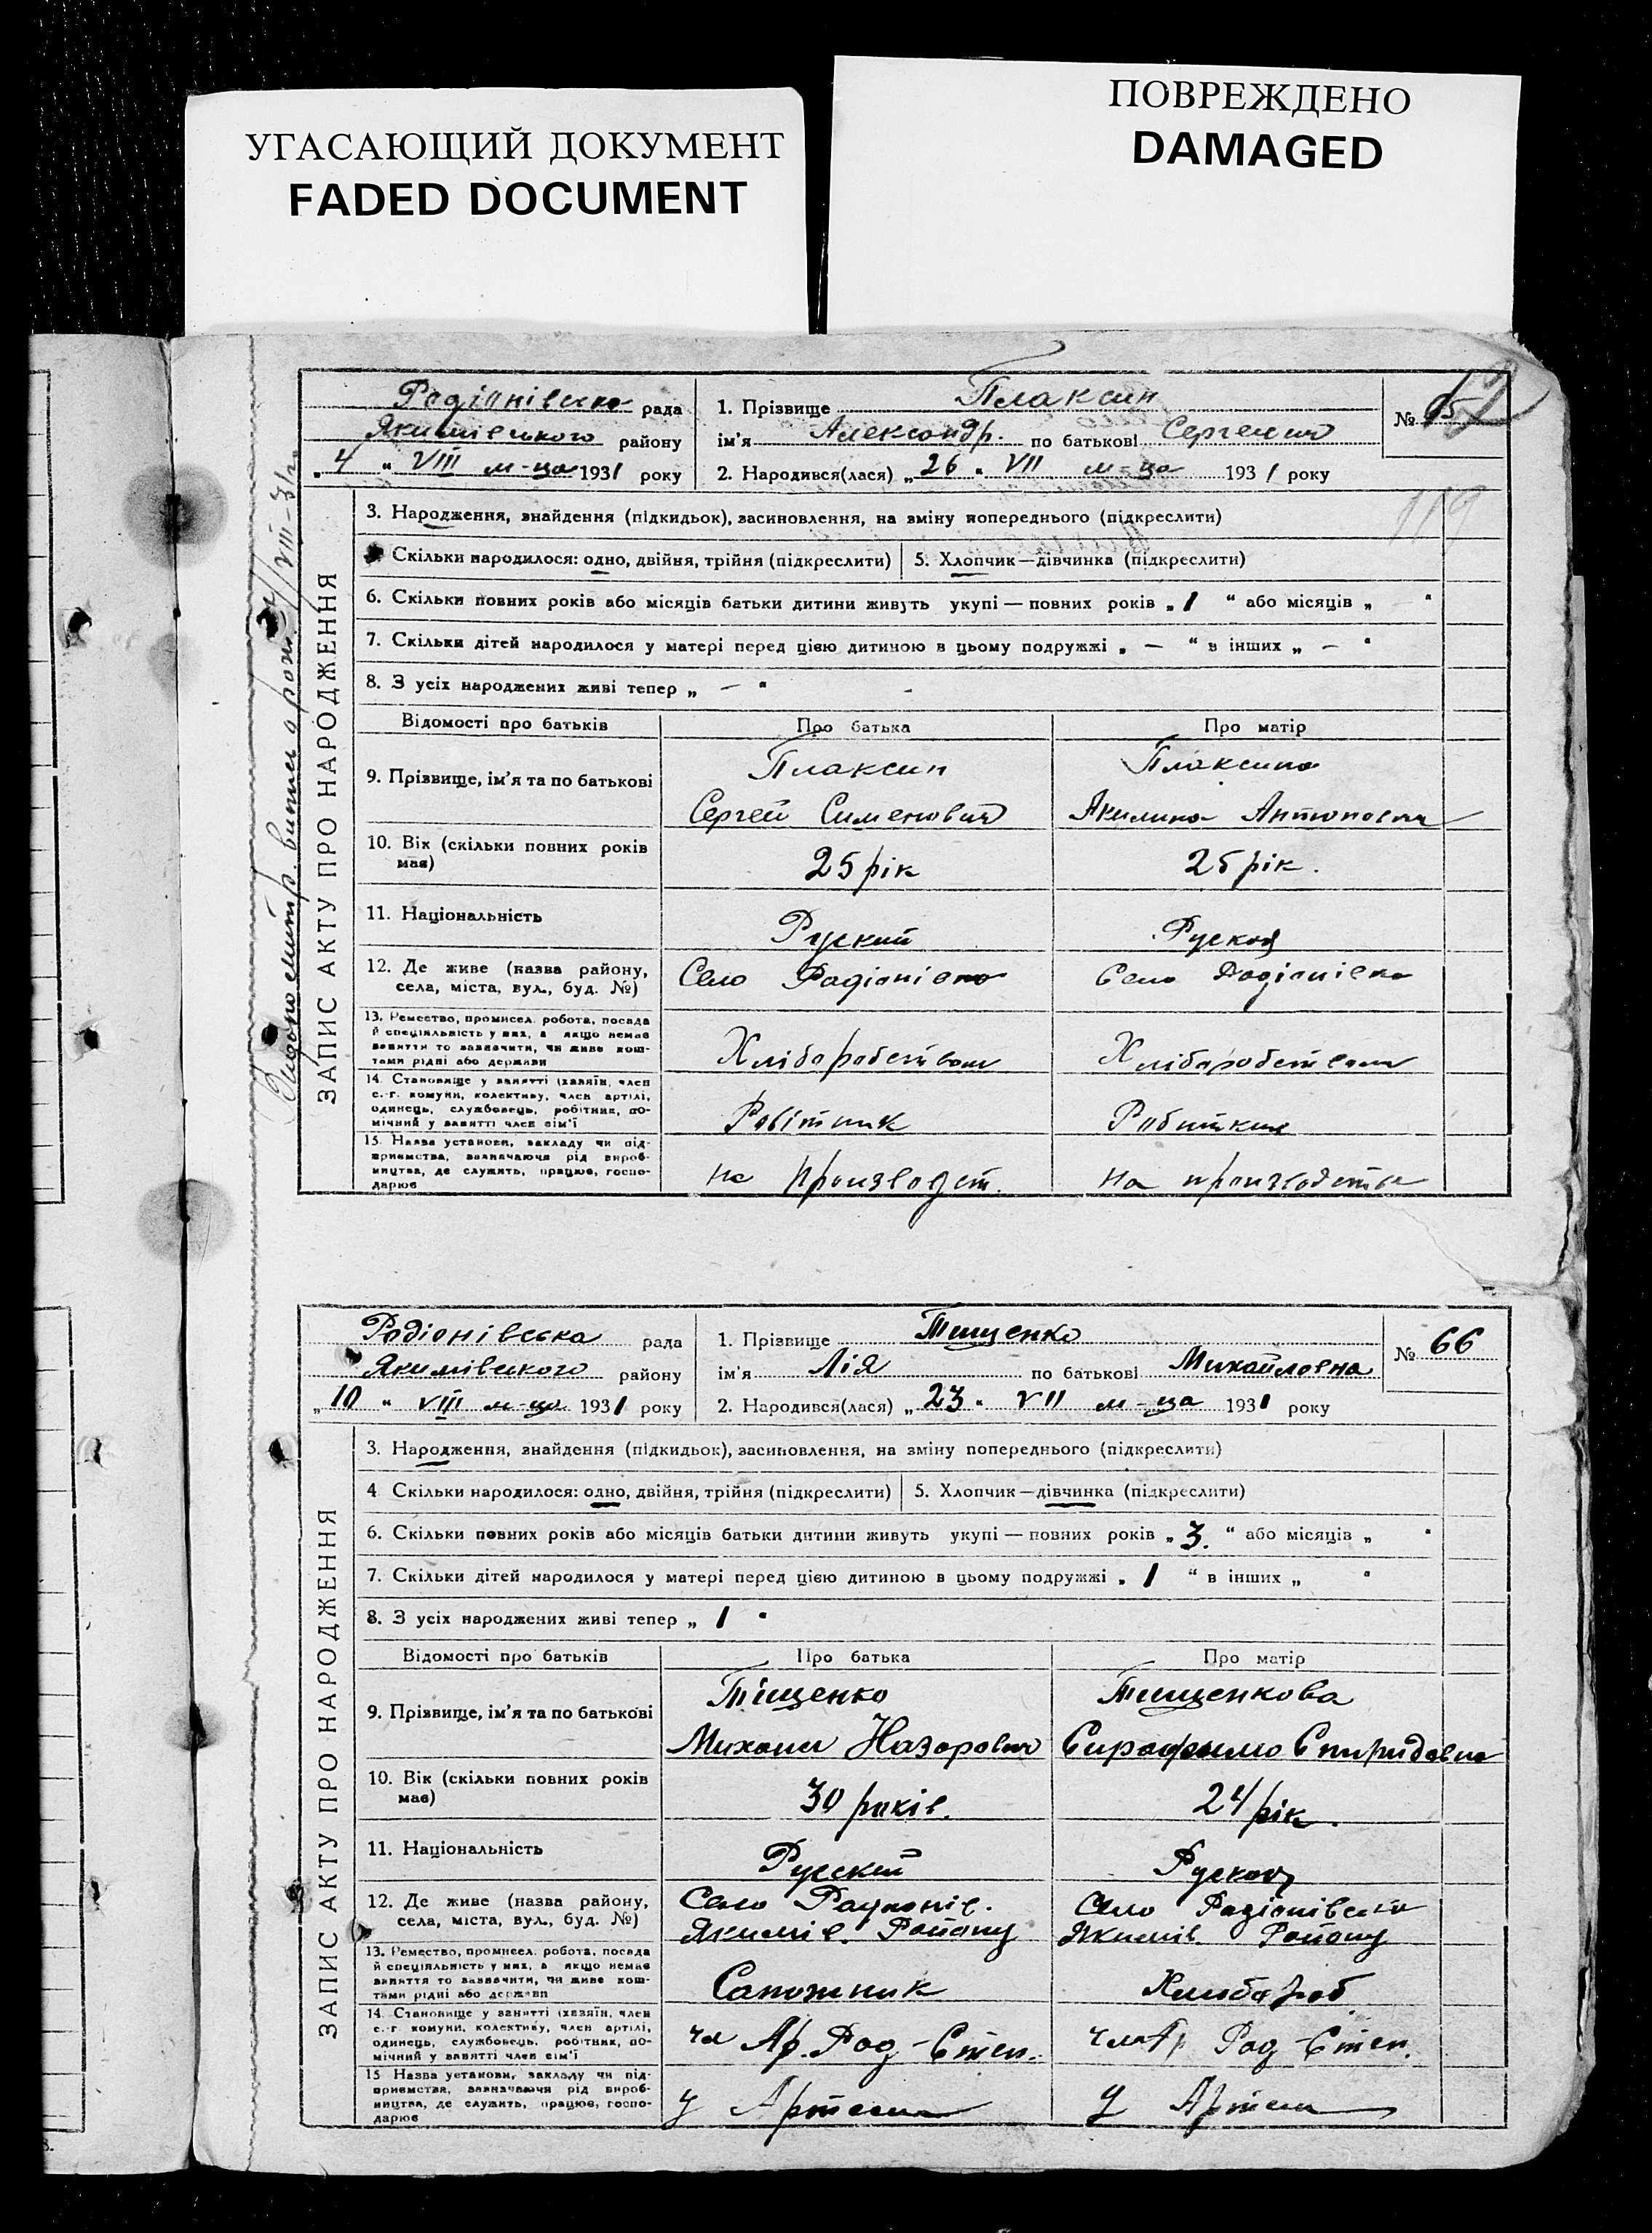 УГАСАЮЩИЙ ДОКУМЕНТ
FADED DOCUMENT
ПОВРЕЖДЕНО
DAMAGED
Радіонівська рада
Якимівського району
„4 “ VIII м-ца 1931 року
1. Прізвище Плаксин
ім'я Александр. по батькові Сергеевич
2. Народився(лася) „26 “ VII м-ца 1931 року
№
119
ЗАПИС АКТУ ПРО НАРОДЖЕННЯ
3. Народження, знайдення (підкидьок), засиновлення, на зміну попереднього (підкреслити)
Скільки народилося: одно, двійня, трійня (підкреслити) 5. Хлопчик—дівчинка (підкреслити)
6. Скільки повних років або місяців батьки дитини живуть укупі — повних років „ 1 “ або місяців „ — “
7. Скільки дітей народилося у матері перед цією дитиною в цьому подружжі „ — “ в інших „ — “
8. З усіх народжених живі тепер „ — “
Відомості про батьків Про батька Про матір
9. Прізвище, ім'я та по батькові
Плаксин Плаксина
Сергей Сименович Акилина Антоновна
10. Вік (скільки повних років має) 25 рік 25 рік.
11. Національність Руский Руская
12. Де живе (назва району, села, міста, вул., буд. №) Село Радіонівка Село Радіонівка
13. Ремество, промисел, робота, посада й спеціяльність у них, а якщо немає заняття то зазначити, чи живе коштами рідні або держави
Хліборобством Хліборобством
14. Становище у занятті (хазяїн, член с.-г. комуни, колективу, член артілі, одинець, службовець, робітник, помічний у занятті член сім'ї
Робітник
15. Назва установи, закладу чи підприємства, зазначаючи рід виробництва, де служить, працює, господарює
на производст. на производстве
Радіонівська рада
Якимівского району
„10 “ VIII м-ца 1931 року
1. Прізвище Тищенко
ім'я Лія по батькові Михайловна
2. Народився(лася) „23 “ VII м-ца 1931 року
№ 66
ЗАПИС АКТУ ПРО НАРОДЖЕННЯ
3. Народження, знайдення (підкидьок), засиновлення, на зміну попереднього (підкреслити)
4. Скільки народилося: одно, двійня, трійня (підкреслити) 5. Хлопчик—дівчинка (підкреслити)
6. Скільки повних років або місяців батьки дитини живуть укупі — повних років „ 3. “ або місяців „ “
7. Скільки дітей народилося у матері перед цією дитиною в цьому подружжі „ 1 “ в інших „ “
8. З усіх народжених живі тепер „ 1 “
Відомості про батьків Про батька Про матір
9. Прізвище, ім'я та по батькові
Тіщенко Тищенкова
Михаил Назарович Сирафима Спиридовна
10. Вік (скільки повних років має) 30 років. 24 рік.
11. Національність Русский Руская
12. Де живе (назва району, села, міста, вул., буд. №)
Село Село
Якимів. Району Якимів. Району
13. Ремество, промисел, робота, посада й спеціяльність у них, а якщо немає заняття то зазначити, чи живе коштами рідні або держави
Сапожник Хлибороб
14. Становище у занятті (хазяїн, член с.-г. комуни, колективу, член артілі, одинець, службовець, робітник, помічний у занятті член сім'ї
чл Ар. Рад-Степ. Рад-Степ.
15. Назва установи, закладу чи підприємства, зазначаючи рід виробництва, де служить, працює, господарює
у Артели у Артели